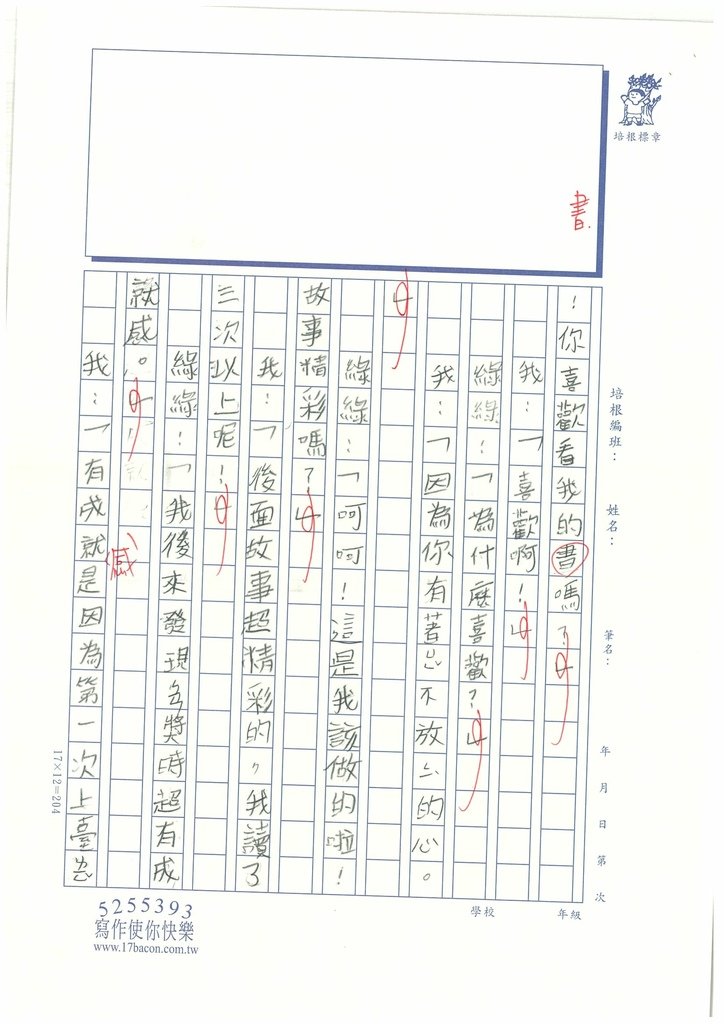 培根標章
書
培根編班：
姓名：
筆名：
年 月 日 第 次
年級
學校
！你喜歡看我的書嗎？」
我：「喜歡啊！」
綠綠：「為什麼喜歡？」
我：「因為你有著忘不放的心。
」
綠綠：「呵呵！這是我該做的啦！
故事精彩嗎？」
我：「後面故事超精彩的，我讀了
三次以上呢！」
綠綠：「我後來發現得獎時超有成
就感。」
感
我：「有成就是因為第一次上臺
17×12=204
5255393
寫作使你快樂
www.17bacon.com.tw